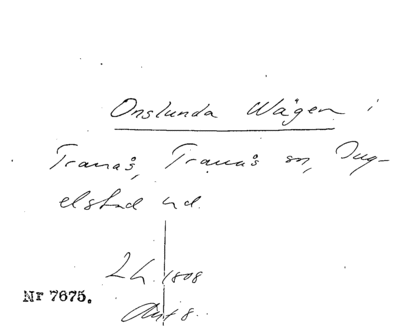 Onslunda Wägen i
Tranås, Tranås sn, Ing-
elstad hd.
2 h. 1808
Nr 7675.
Akt 8.